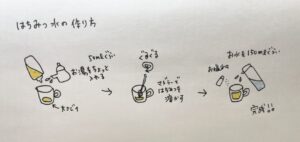 はちみつ水の作り方
50mlくらい
お湯をちょっと
入れる
大さじ1
ぐるぐる
マドラーで
はちみつを
溶かす
お水を150mlくらい
お塩少々
完成!!